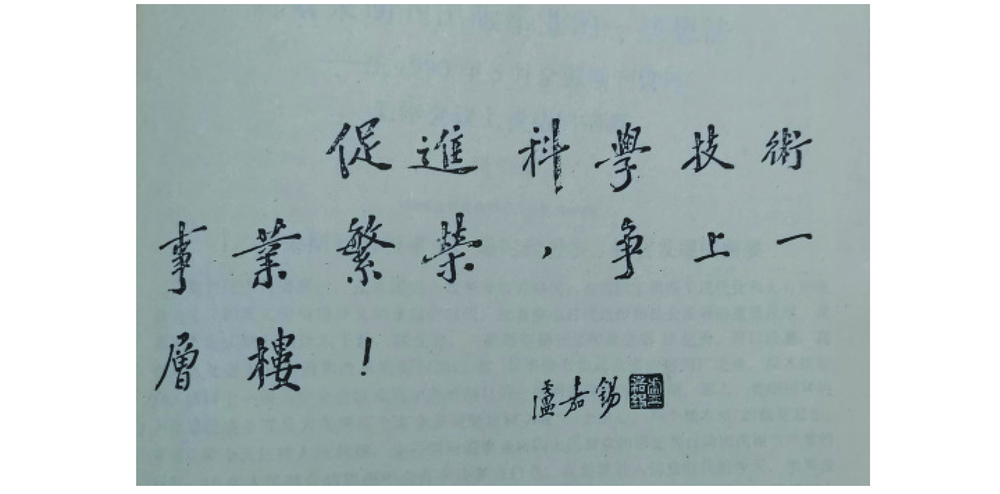 促進科學技術
事業繁榮，爭上一
層樓！
盧嘉錫